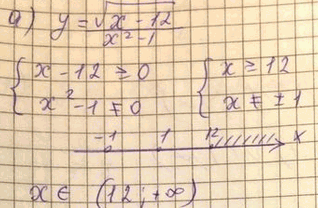 a) y = √(x - 12) / (x² - 1)
{ x - 12 ≥ 0 { x ≥ 12
x² - 1 ≠ 0 x ≠ ± 1
-1 1 12 x
x ∈ (12; +∞)